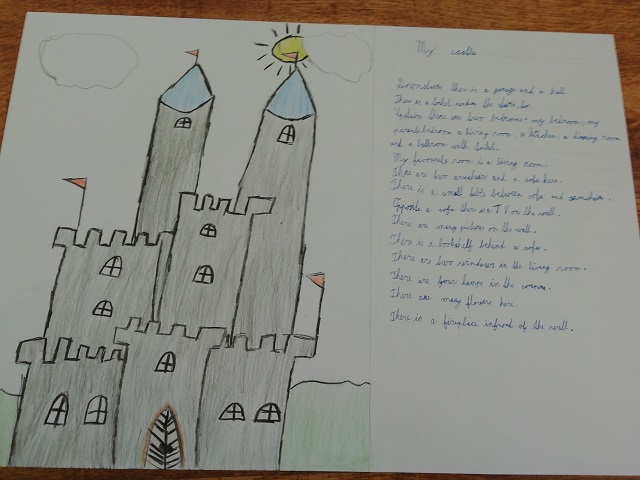 My castle
Downstairs there is a garage and a hall.
There is a toilet under the stairs too.
Upstairs there are two bedrooms - my bedroom, my
parents bedroom a living room, a kitchen, a dinning room
and a bathroom with toilet.
My favourite room is a living room.
There are two armchairs and a sofa here.
There is a small table between sofa and armchairs.
Opposite a sofa there is a TV on the wall.
There are many pictures on the wall.
There is a bookshelf behind a sofa.
There are two windows in the living room.
There are four lamps in the corners.
There are many flowers here.
There is a fireplace infront of the wall.